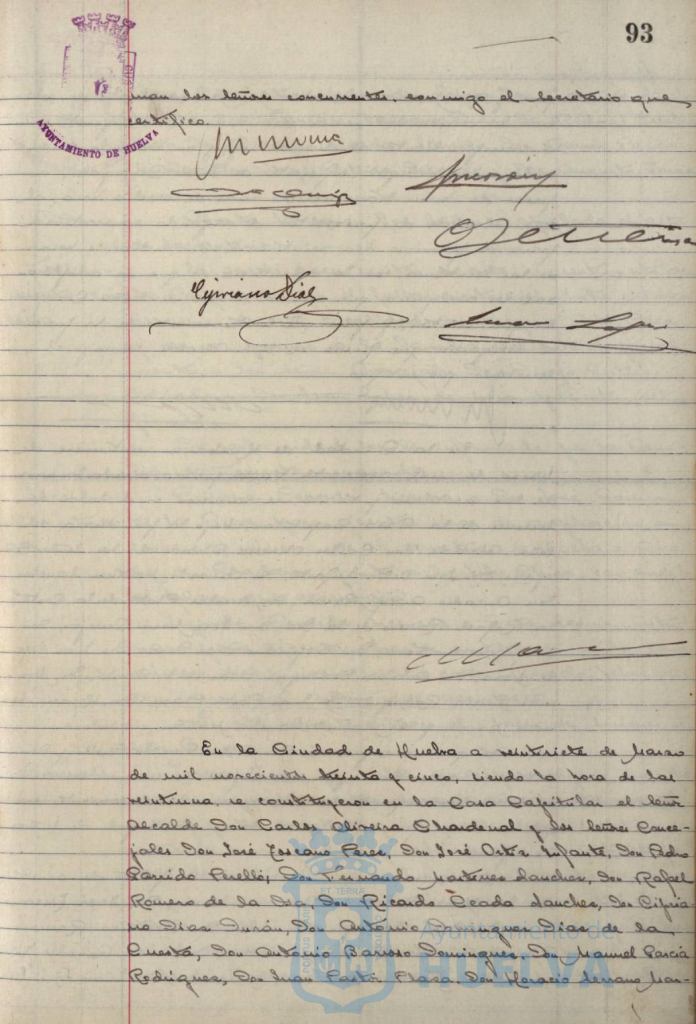 93
AYUNTAMIENTO DE HUELVA
man los señores concurrentes, conmigo el Secretario que
certifico.
Cipriano Díaz
En la Ciudad de Huelva a veintisiete de Marzo
de mil novecientos treinta y cinco, siendo la hora de las
veintiuna, se constituyeron en la Casa Capitular el Señor
Alcalde Don Carlos Oliveira Chardenal y los Señores Conce-
jales Don José Toscano Perez, Don José Ortiz Infante, Don Pedro
Garrido Perelló, Don Fernando Martinez Sanchez, Don Rafael
Romero de la Osa, Don Ricardo Terada Sanchez, Don Cipria-
no Díaz Durán, Don Antonio Dominguez Díaz de la
Cuesta, Don Antonio Barroso Dominguez, Don Manuel García
Rodriguez, Don Juan Pastor Plaza, Don Horacio Serrano Mar-
Ayuntamiento de
HUELVA